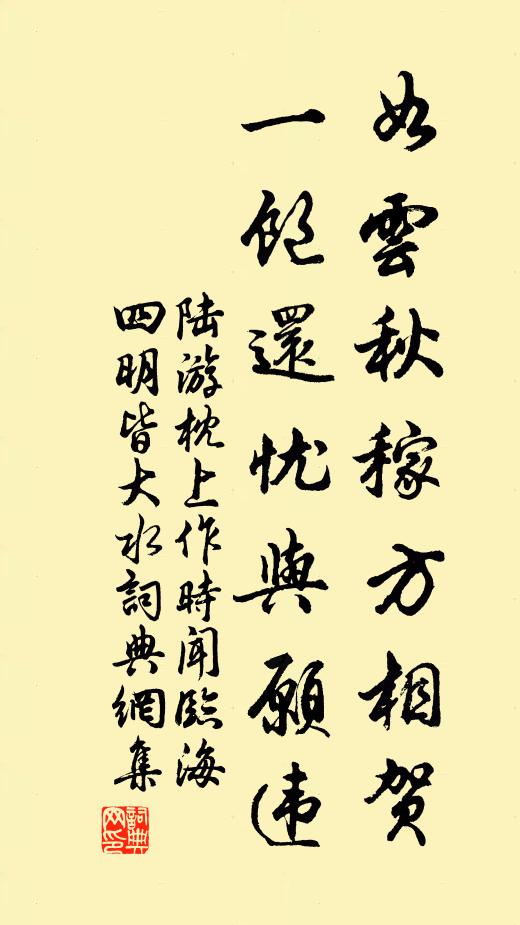 如雲秋稼方相贺
一飽還忧與願违
陆游枕上作時闻臨海
四明皆大水詞典網集
詞典
网印